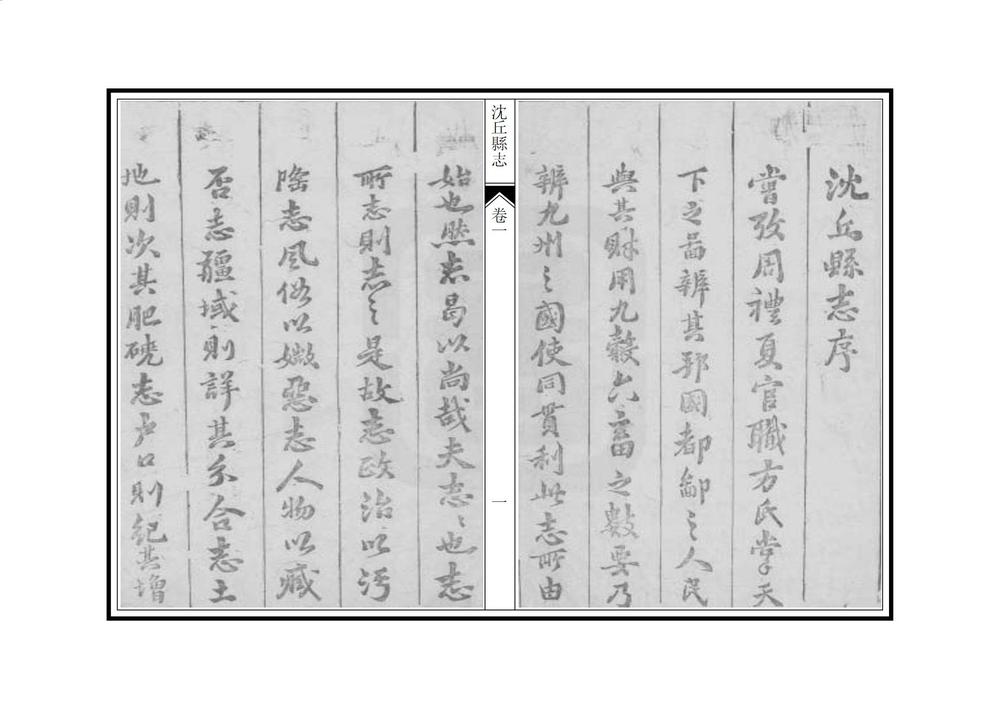 沈丘縣志序
嘗攷周禮夏官職方氏掌天
下之啚辨其邦國都鄙之人民
與其財用九穀六畜之數要乃
辨九州之國使同貫利此志所由
沈丘縣志
卷一
一
始也然志曷以尚哉夫志志也志
所志則志之是故志政治以汚
隆志風俗以媺惡志人物以臧
否志疆域則詳其分合志土
地則次其肥磽志户口則紀其增